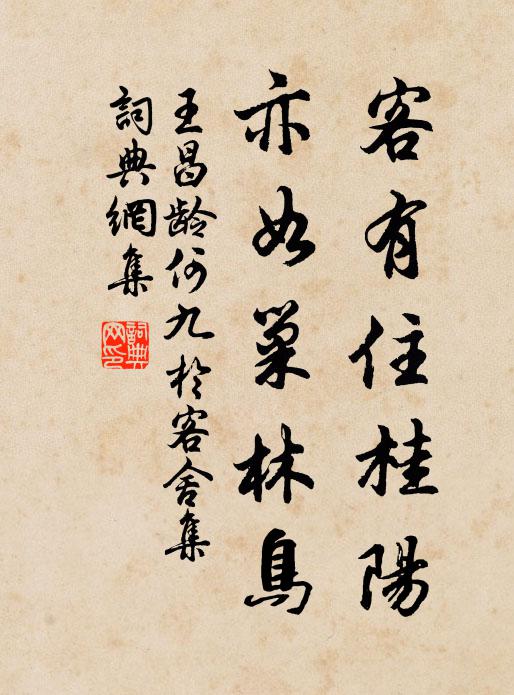 客有住桂陽
亦如巢林鳥
王昌龄何九於客舍集
詞典網集
詞典网印